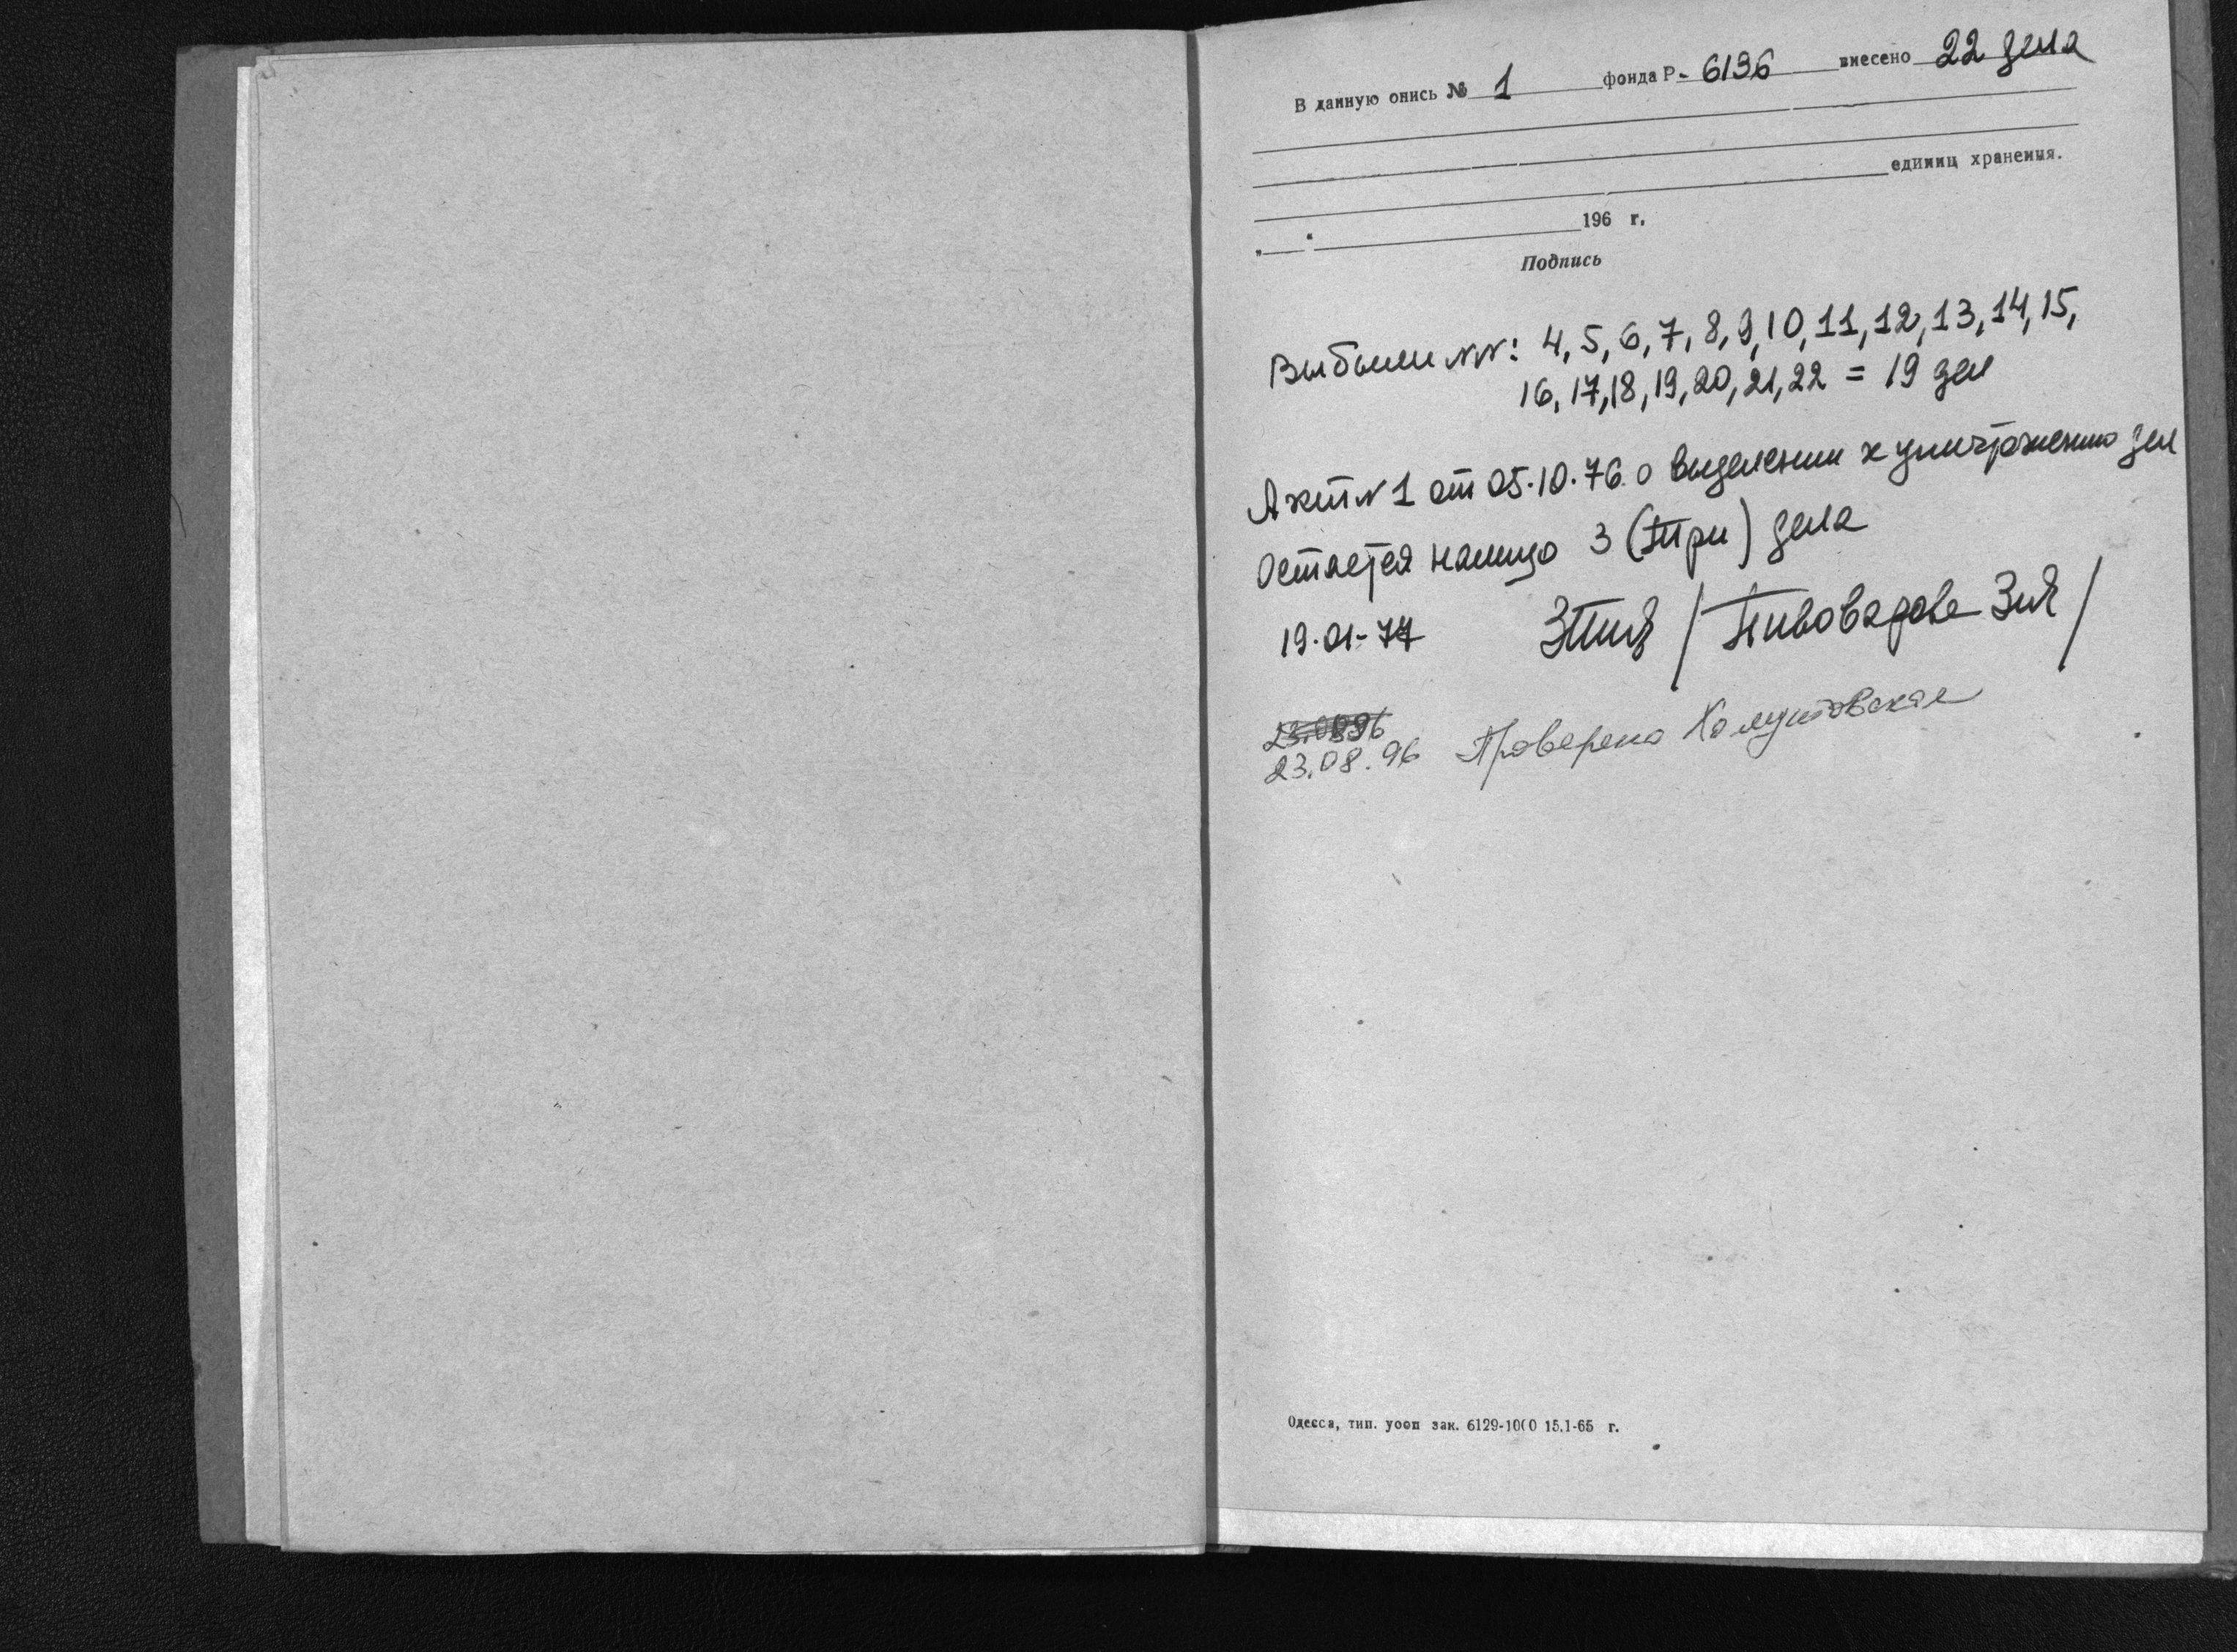 В данную опись № 1 фонда Р - 6196 внесено 22 дела
единиц хранения.
„ “ 196 г.
Подпись
Выбыли NN: 4, 5, 6, 7, 8, 9, 10, 11, 12, 13, 14, 15,
16, 17, 18, 19, 20, 21, 22 = 19 дел
Акт N 1 от 05.10.76 о выделении к уничтожению дел
Остается налицо 3 (три) дела
19.01-77 / Пивоварова /
23.08.96 Проверено Хомутовская
Одесса, тип. уооп зак. 6129-1000 15.1-65 г.